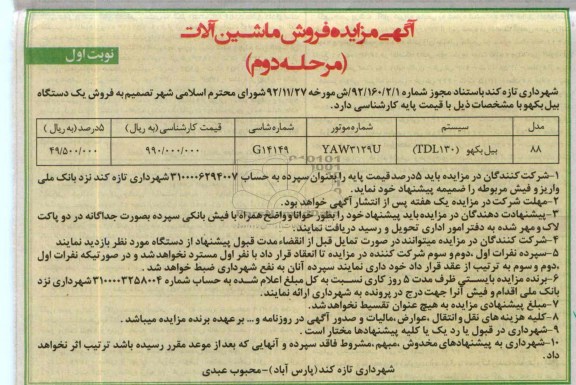 آگهی مزایده فروش ماشین آلات
(مرحله دوم)
نوبت اول
شهرداری تازه کند باستناد مجوز شماره ۹۲/۱۶۰/۲/۱/ش مورخه ۹۲/۱۱/۲۷ شورای محترم اسلامی شهر تصمیم به فروش یک دستگاه
بیل بکهو با مشخصات ذیل با قیمت پایه کارشناسی دارد.
مدل سیستم شماره موتور شماره شاسی قیمت کارشناسی (به ریال) ۵درصد (به ریال)
۸۸ بیل بکهو (TDL۱۳۰) YAW۳۱۲۹U G۱۴۱۴۹ ۹۹۰/۰۰۰/۰۰۰ ۴۹/۵۰۰/۰۰۰
۱-شرکت کنندگان در مزایده باید ۵درصد قیمت پایه را بعنوان سپرده به حساب ۳۱۰۰۰۰۶۲۹۴۰۰۷ شهرداری تازه کند نزد بانک ملی
واریز و فیش مربوطه را ضمیمه پیشنهاد خود نماید.
۲-مهلت شرکت در مزایده یک هفته پس از انتشار آگهی خواهد بود.
۳-پیشنهادت دهندگان در مزایده باید پیشنهاد خود را بطور خوانا و واضح همراه با فیش بانکی سپرده بصورت جداگانه در دو پاکت
لاک و مهر شده به دفتر امور اداری تحویل و رسید دریافت نمایند.
۴-شرکت کنندگان در مزایده میتوانند در صورت تمایل قبل از انقضاء مدت قبول پیشنهاد از دستگاه مورد نظر بازدید نمایند
۵-سپرده نفرات اول ،دوم و سوم شرکت کننده در مزایده تا انعقاد قرار داد با نفر اول مسترد نخواهد شد و در صورتیکه نفرات اول
،دوم و سوم به ترتیب از عقد قرار داد خود داری نمایند سپرده آنان به نفع شهرداری ضبط خواهد شد.
۶-برنده مزایده بایستی ظرف مدت ۵ روز کاری نسبت به کل مبلغ اعلام شده به حساب شماره ۳۱۰۰۰۰۳۲۵۸۰۰۴ شهرداری نزد
بانک ملی اقدام و فیش آنرا جهت درج در پرونده به شهرداری ارائه نمایند.
۷-مبلغ پیشنهادی مزایده به هیچ عنوان تقسیط نخواهد شد.
۸-کلیه هزینه های نقل و انتقال ،عوارض،مالیات و صدور آگهی در روزنامه و... بر عهده برنده مزایده میباشد.
۹-شهرداری در قبول یا رد یک یا کلیه پیشنهادها مختار است.
۱۰-شهرداری به پیشنهادهای مخدوش ،مبهم،مشروط فاقد سپرده و آنهایی که بعد از موعد مقرر رسیده باشد ترتیب اثر نخواهد
داد.
شهرداری تازه کند(پارس آباد)-محبوب عبدی